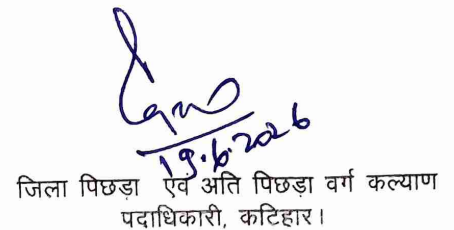 19.6.2026
जिला पिछड़ा एवं अति पिछड़ा वर्ग कल्याण
पदाधिकारी, कटिहार।